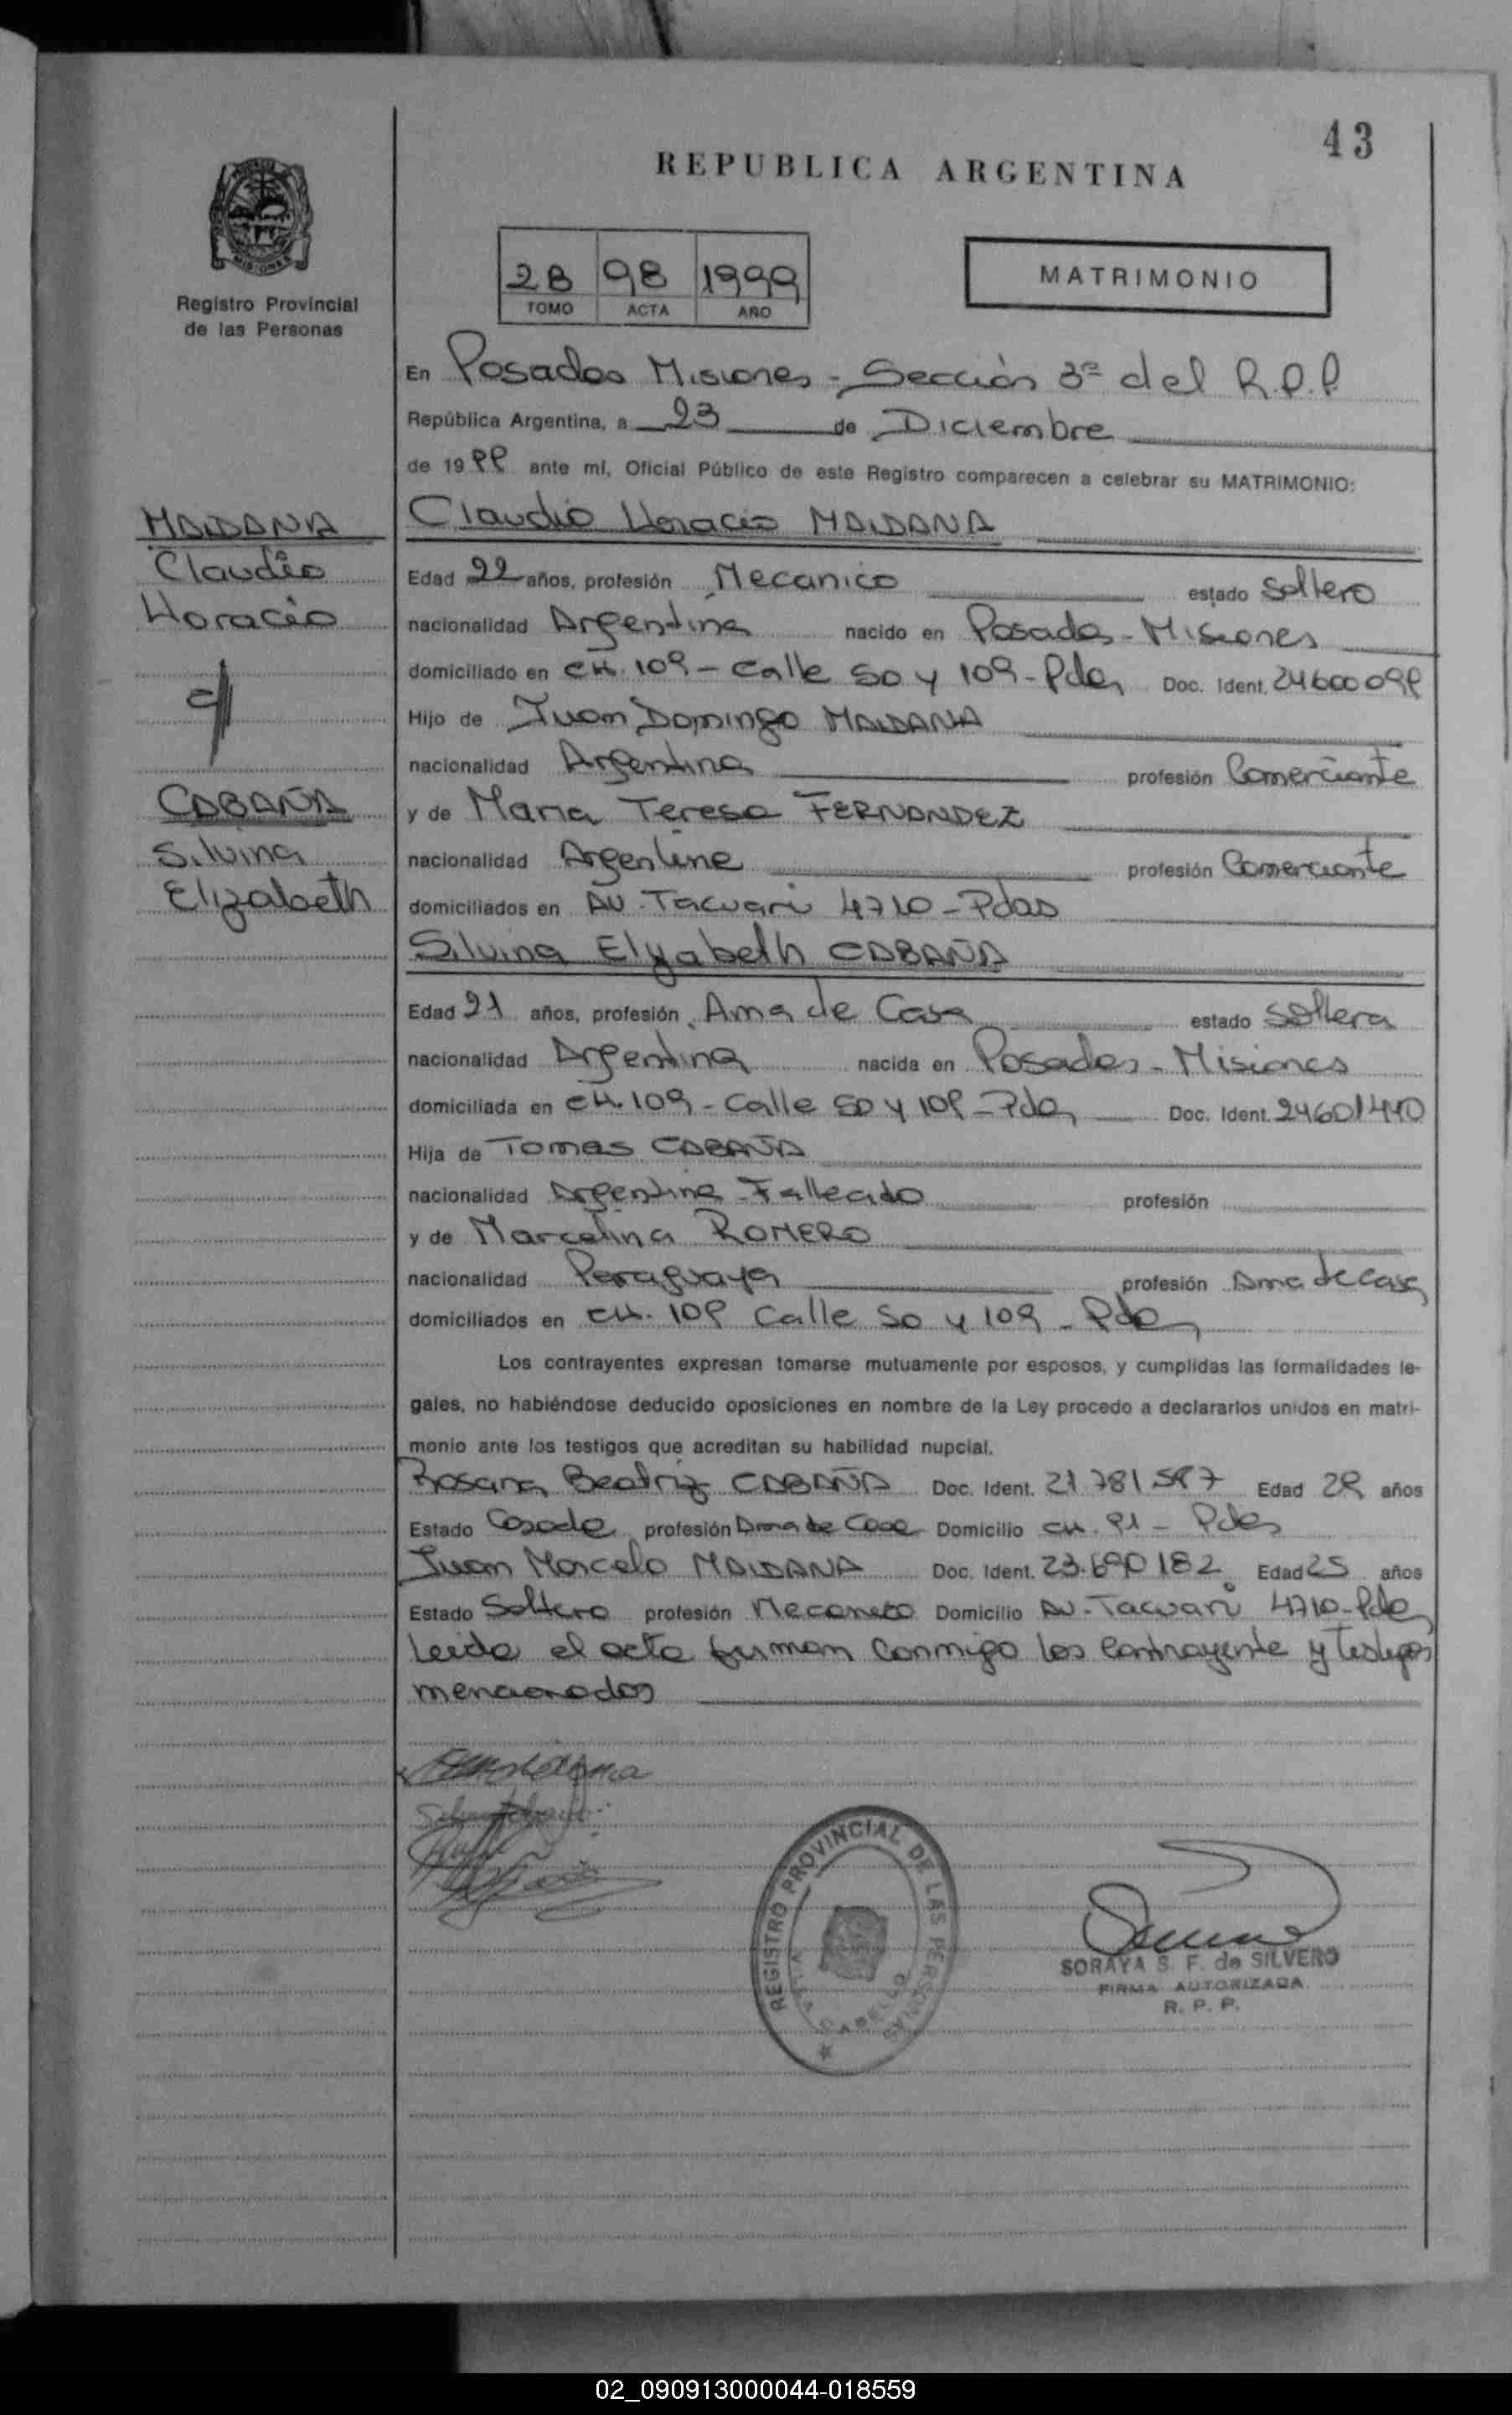 43
REPUBLICA ARGENTINA
Registro Provincial
de las Personas
2B 98 1999
TOMO ACTA AÑO
MATRIMONIO
En Posadas Misiones - Sección 3ª del R.P.P
República Argentina, a 23 de Diciembre
de 1999 ante mí, Oficial Público de este Registro comparecen a celebrar su MATRIMONIO:
MAIDANA
Claudio
Horacio
y
CABAÑA
Silvina
Elizabeth
Claudio Horacio MAIDANA
Edad 22 años, profesión Mecanico estado Soltero
nacionalidad Argentina nacido en Posadas - Misiones
domiciliado en CH. 109 - Calle 50 y 109 - Pdas Doc. Ident. 24600099
Hijo de Juan Domingo MAIDANA
nacionalidad Argentina profesión Comerciante
y de Maria Teresa FERNANDEZ
nacionalidad Argentina profesión Comerciante
domiciliados en AV. Tacuari 4710 - Pdas
Silvina Elizabeth CABAÑA
Edad 21 años, profesión Ama de Casa estado Soltera
nacionalidad Argentina nacida en Posadas - Misiones
domiciliada en CH. 109 - Calle 50 y 109 - Pdas Doc. Ident. 24601440
Hija de Tomas CABAÑA
nacionalidad Argentina - Fallecido profesión
y de Marcelina ROMERO
nacionalidad Paraguaya profesión Ama de casa
domiciliados en CH. 109 Calle 50 y 109 - Pdas
Los contrayentes expresan tomarse mutuamente por esposos, y cumplidas las formalidades le-
gales, no habiéndose deducido oposiciones en nombre de la Ley procedo a declararlos unidos en matri-
monio ante los testigos que acreditan su habilidad nupcial.
Rosana Beatriz CABAÑA Doc. Ident. 21.781.597 Edad 29 años
Estado Casada profesión Ama de Casa Domicilio CH. 91 - Pdas
Juan Marcelo MAIDANA Doc. Ident. 23.690.182 Edad 25 años
Estado Soltero profesión Mecanico Domicilio AV. Tacuari 4710 - Pdas
Leida el acta firman conmigo los Contrayente y testigos
mencionados
REGISTRO PROVINCIAL DE LAS PERSONAS
SORAYA S. F. de SILVERO
FIRMA AUTORIZADA
R. P. P.
02_090913000044-018559